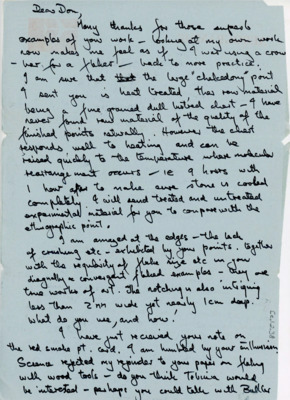 Dear Don,
Many thanks for those superb
examples of your work - looking at my own work
now makes me feel as if I was using a crow
-bar for a flaker! - back to more practice.
I am sure that the large "chalcedony" point
I sent you is heat treated this raw material
being a fine grained dull lustred chert - I have
never found raw material of the quality of the
finished points naturally. However the chert
responds well to heating and can be
raised quickly to the temperature where molecular
rearrangement occurs - ie 9 hours with
1 hour after to make sure stone is cooled
completely. I will send treated and untreated
experimental material for you to compare with the
ethnographic point.
I am amazed at the edges - the lack
of crushing etc - exhibited by your points. together
with the regularity of flake size etc on your
diagonally convergent flaked examples - they are
true works of art. the notching is also intriguing
less than 2 mm wide yet nearly 1cm deep.
What do you use, and how!
I have just received your note on
the red smoke pt. card. I am humbled by your enthusiasm
Science rejected my rejoinder to your paper on flaking
with wood tools - do you think Tebiwa would
be interested - perhaps you could talk with Earl